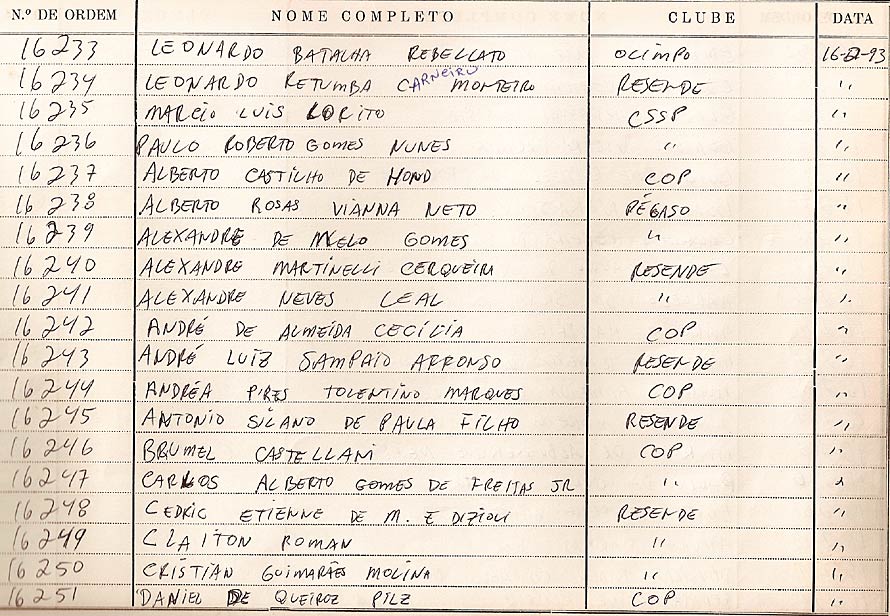 N.º DE ORDEM NOME COMPLETO CLUBE DATA
16233 LEONARDO BATALHA REBELLATO OLIMPO
16234 LEONARDO RETUMBA CARNEIRO MONTEIRO RESENDE "
16235 MARCIO LUIS LORITO CSSP "
16236 PAULO ROBERTO GOMES NUNES " "
16237 ALBERTO CASTILHO DE HOND COP "
16238 ALBERTO ROSAS VIANNA NETO PÉGASO "
16239 ALEXANDRE DE MELO GOMES " "
16240 ALEXANDRE MARTINELLI CERQUEIRA RESENDE "
16241 ALEXANDRE NEVES LEAL " "
16242 ANDRÉ DE ALMEIDA CECILIA COP "
16243 ANDRÉ LUIZ SAMPAIO AFFONSO RESENDE "
16244 ANDRÉA PIRES TOLENTINO MARQUES COP "
16245 ANTONIO SILANO DE PAULA FILHO RESENDE "
16246 BRUMEL CASTELLANI COP "
16247 CARLOS ALBERTO GOMES DE FREITAS JR " "
16248 CEDRIC ETIENNE DE M. E DIZIOLI RESENDE "
16249 CLAITON ROMAN " "
16250 CRISTIAN GUIMARÃES MOLINA " "
16251 DANIEL DE QUEIROZ PILZ COP "